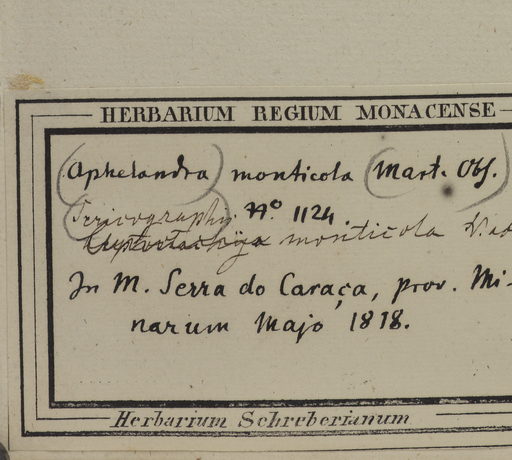 HERBARIUM REGIUM MONACENSE
(Aphelandra) monticola (Mart. Obs.
Sericographis N.º 1124.
monticola
In M. Serra do Caraça, prov. Mi-
narum Majo 1818.
Herbarium Schreberianum